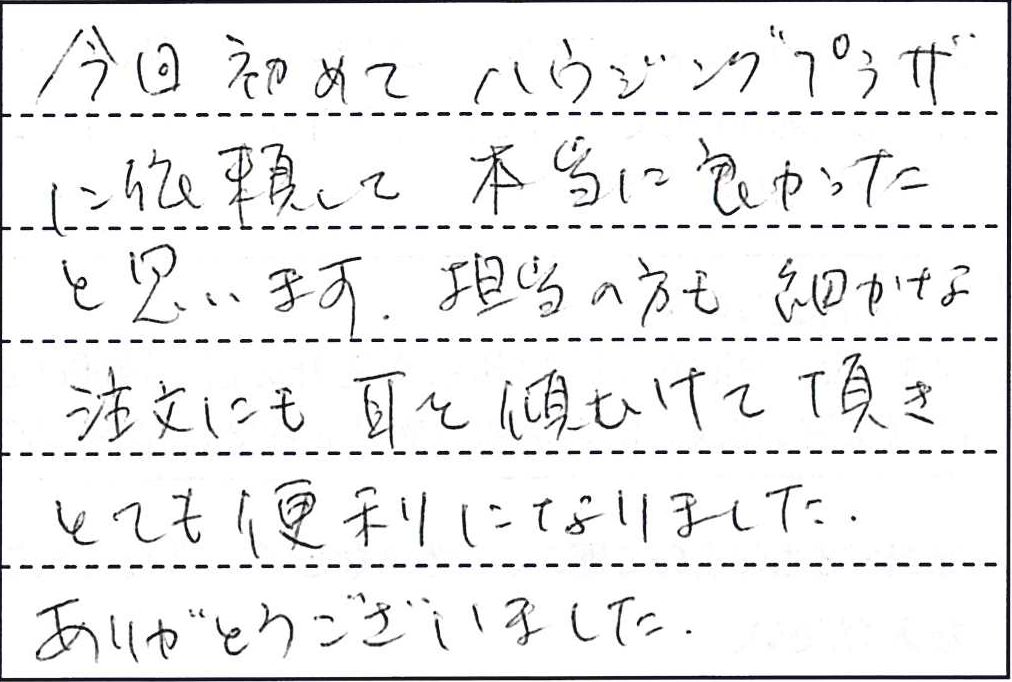 今回初めてハウジングプラザ
に依頼して本当に良かった
と思います.担当の方も細かな
注文にも耳を傾むけて頂き
とても便利になりました.
ありがとうございました.